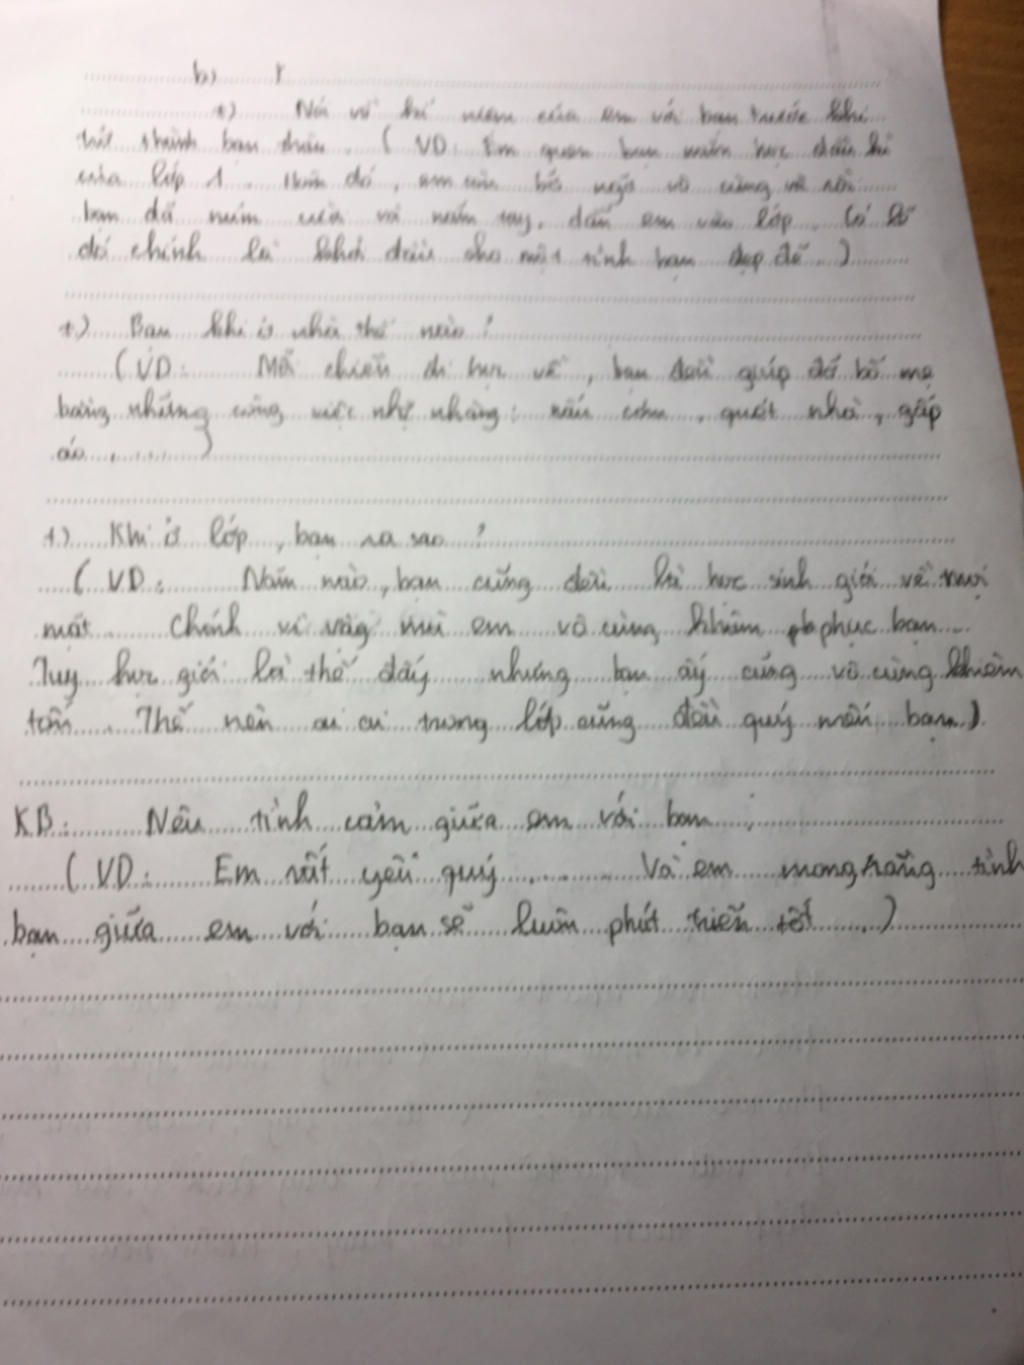 b)
+) Nói về kỉ niệm của em với bạn trước khi
trở thành bạn thân. ( VD: Em quen bạn năm học đầu
của lớp 1. Hôm đó, em còn bỡ ngỡ vô cùng
bạn đã mỉm cười và nắm tay, dẫn em vào lớp. Có lẽ
đó chính là khởi đầu cho một tình bạn đẹp đẽ.)
+) Bạn khi ở nhà thế nào?
(VD: Mỗi chiều đi học về, bạn đều giúp đỡ bố mẹ
bằng những công việc nhẹ nhàng: nấu cơm, quét nhà, gấp
áo.........)
+) Khi ở lớp, bạn ra sao?
( VD: Năm nào, bạn cũng đều là học sinh giỏi về mọi
mặt. Chính vì vậy mà em vô cùng khâm phục bạn...
Tuy học giỏi là thế đấy nhưng bạn ấy cũng vô cùng khiêm
tốn. Thế nên ai ai trong lớp cũng đều quý mến bạn.)
KB: Nêu tình cảm giữa em với bạn:
( VD: Em rất yêu quý.......... Và em mong rằng tình
bạn giữa em với bạn sẽ luôn phát triển tốt...)